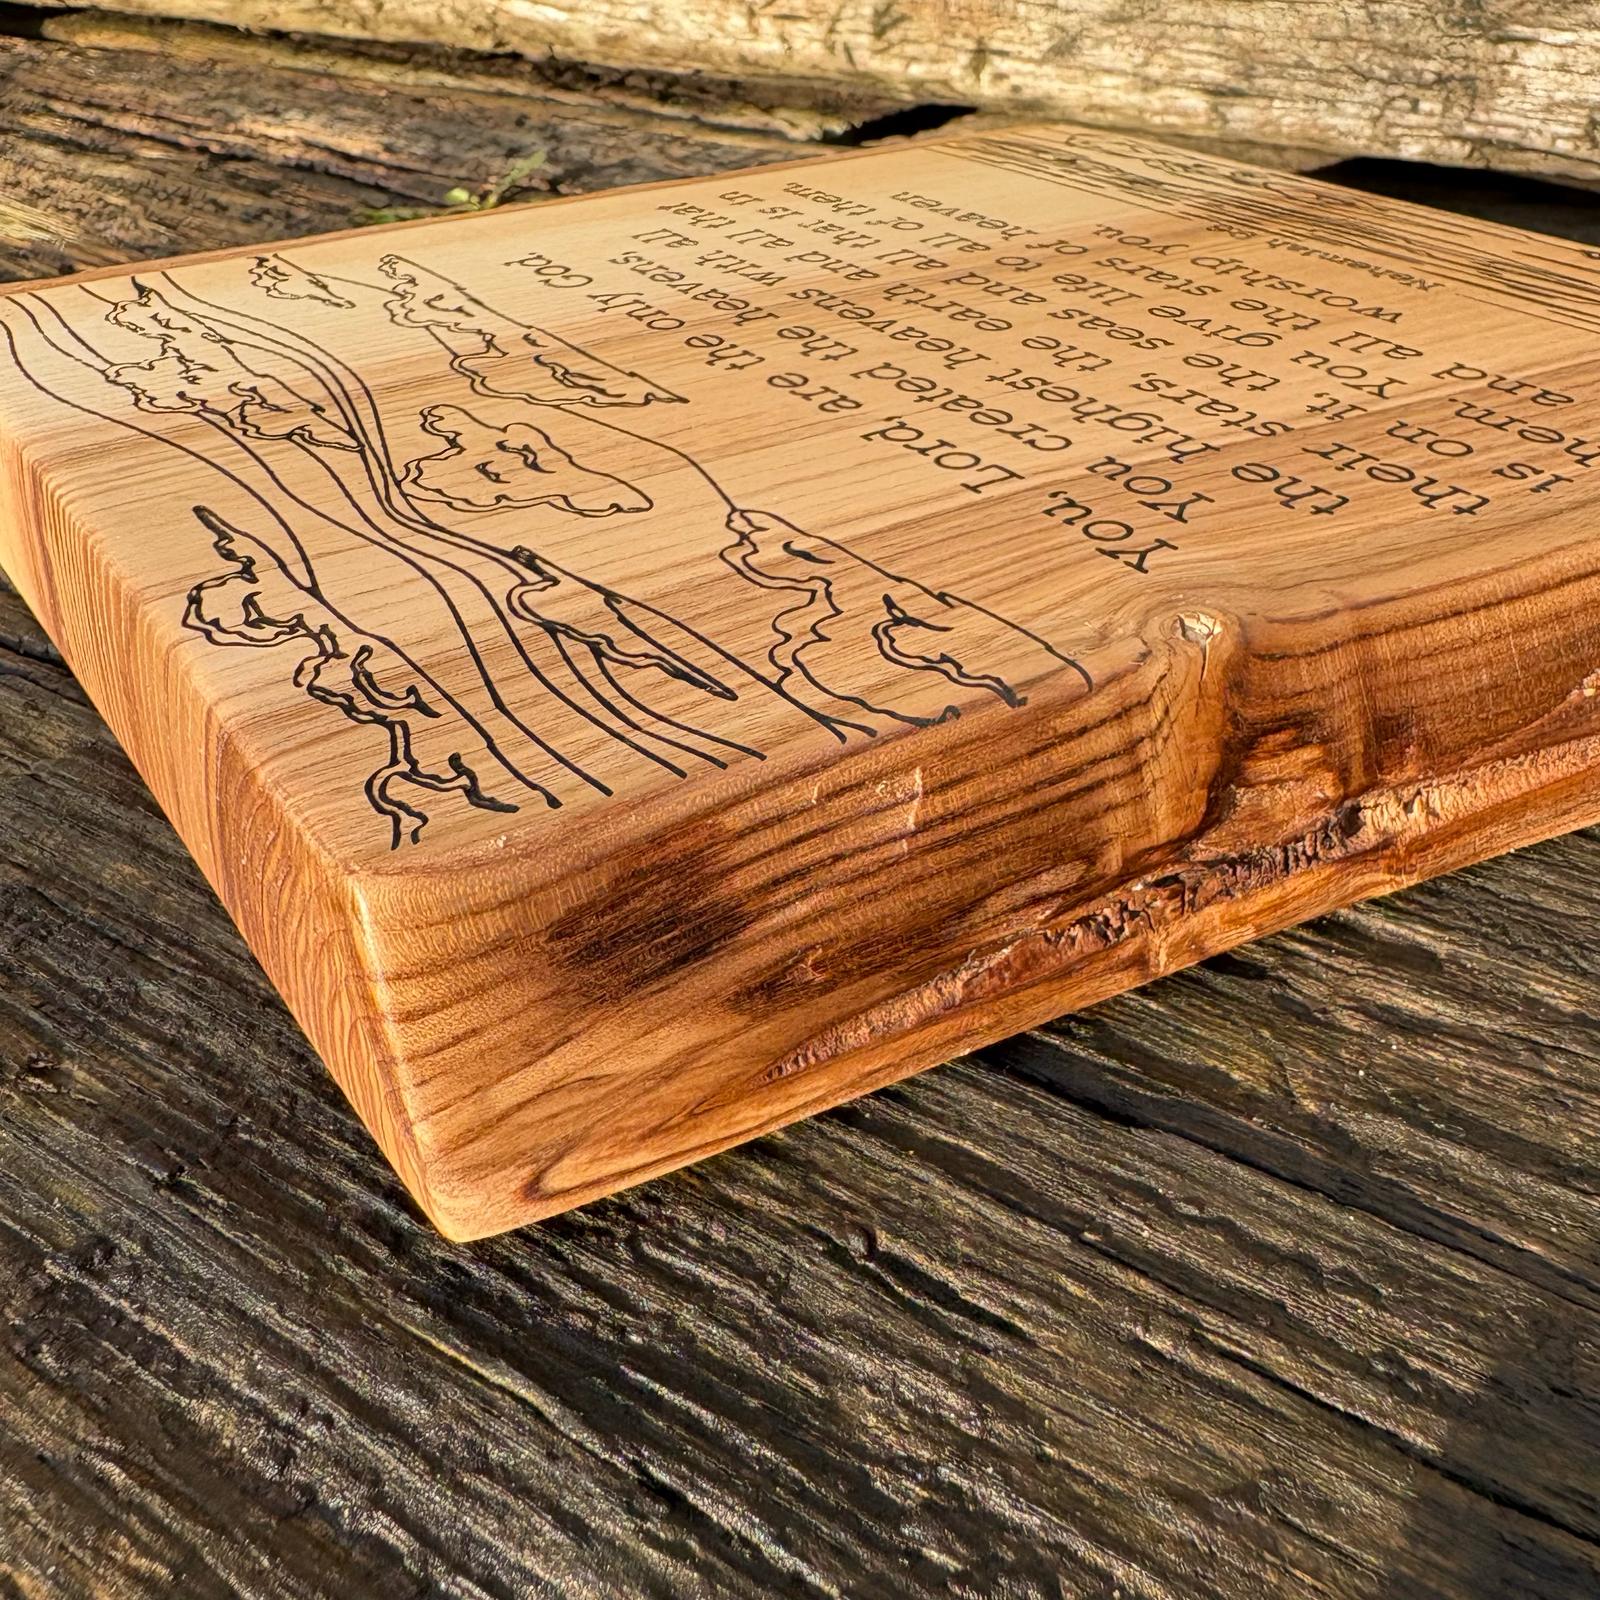 You, Lord, are the only God
You created the heavens
the highest heavens with all
their stars, the earth and all that
is on it, the seas and all that is in
them. You give life to all of them
and all the stars of heaven
worship you.
Nehemiah